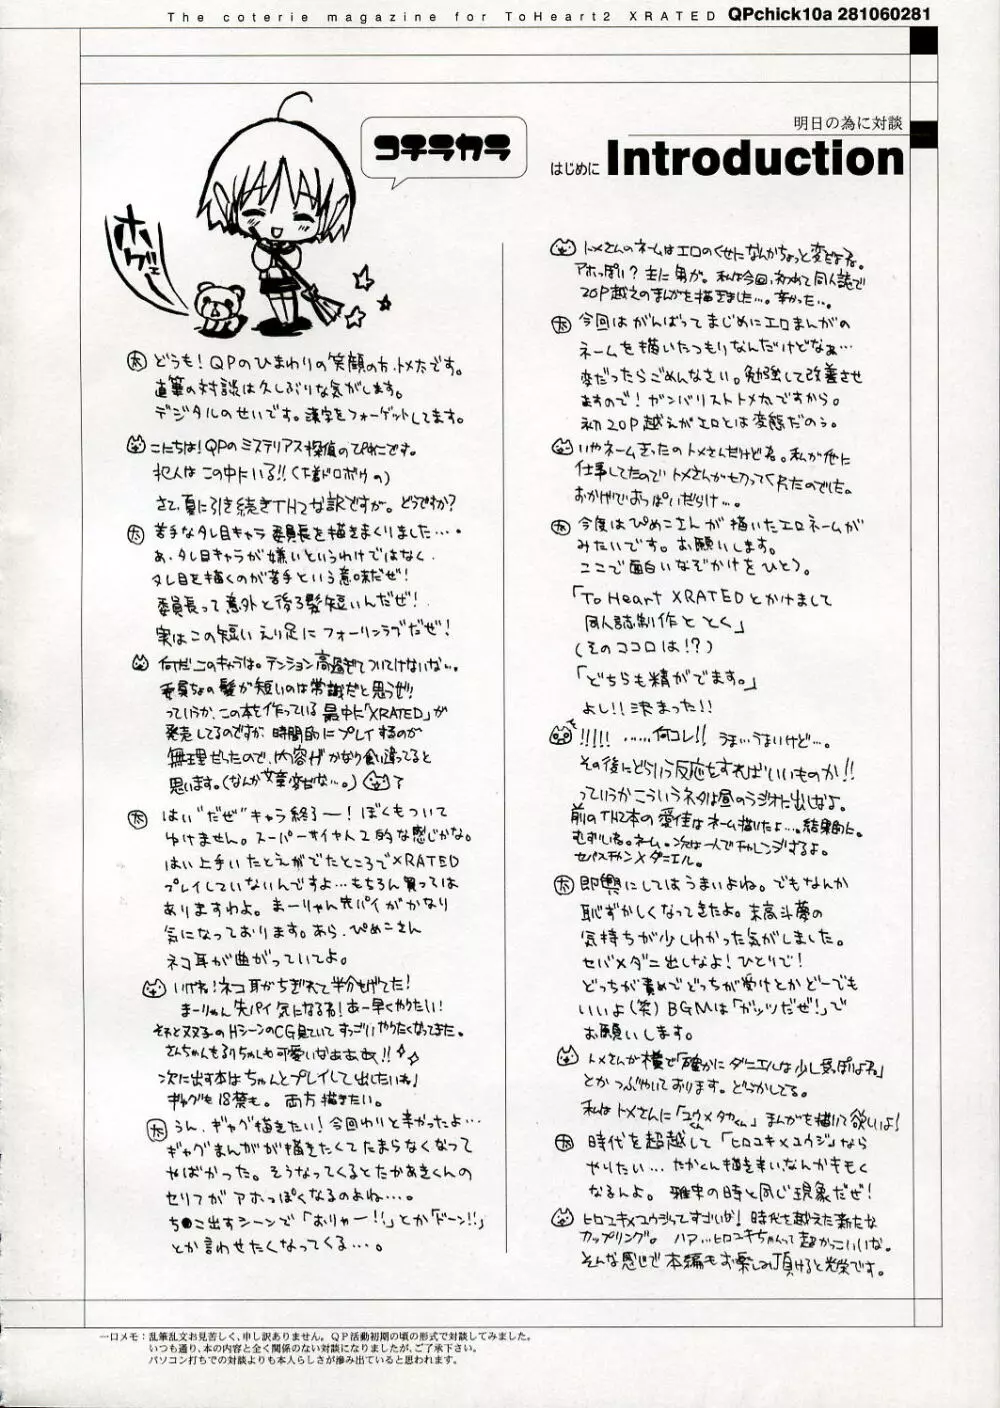 The coterie magazine for ToHeart2 XRATED QPchick10a 281060281
明日の為に対談
はじめに Introduction
コチラカラ
ホゲェー
太 どうも!QPのひまわりの笑顔の方、トメ太です。
直筆の対談は久しぶりな気がします。
デジタルのせいです。漢字をフォーゲットしてます。
こにちは!QPのミステリアス探偵のぴめこです。
犯人はこの中にいる!!(下着ドロボウの)
さて、夏に引き続きTH2な訳ですが。どうですか?
太 苦手なタレ目キャラ委員長を描きまくりました‥‥
あ、タレ目キャラが嫌いというわけではなく、
タレ目を描くのが苦手という意味だぜ!
委員長って意外と後ろ髪短いんだぜ!
実はこの短いえり足にフォーリンラブだぜ!
何だこのキャラは。テンション高過ぎてついてけないな…。
委員ちょの髪が短いのは常識だと思うぜ!!
っていうか、この本を作っている最中に「XRATED」が
発売してるのですが時間的にプレイするのが
無理だったので、内容がかなり食い違ってると
思います。(なんか文章変だな…。)?
太 はい“だぜ”キャラ終了ー!ぼくもついて
ゆけません。スーパーサイヤ人2的な感じかな。
はい上手いたとえがでたところでXRATED
プレイしていないんですよ…もちろん買っては
ありますわよ。まーりゃん先パイがかなり
気になっております。あら、ぴめこさん
ネコ耳が曲がっていてよ。
いけね!ネコ耳がちぎれて半分もげてた!
まーりゃん先パイ気になるね!あー早くやりたい!
それと双子のHシーンのCG見ていてすっごいやりたくなってきた。
さんちゃんもるりちゃんも可愛いなぁぁぁぁ!!
次に出す本はちゃんとプレイして出したいね!
ギャグも18禁も。両方描きたい。
太 うん、ギャグ描きたい!今回わりと辛かったよ…
ギャグまんがが描きたくてたまらなくなって
やばかった。そうなってくるとたかあきくんの
セリフがアホっぽくなるのよね…。
ち●こ出すシーンで「おりゃー!!」とか「ドーン!!」
とか言わせたくなってくる…。
トメさんのネームはエロのくせになんかちょっと変だよね。
アホっぽい?主に男が。私は今回、初めて同人誌で
20P越えのまんがを描きました…。辛かった…。
太 今回はがんばってまじめにエロまんがの
ネームを描いたつもりなんだけどなぁ…
変だったらごめんなさい。勉強して改善させ
ますので!ガンバリストトメ太ですから。
初20P越えがエロとは変態だのぅ。
いやネームきったのトメさんだけどね。私が他に
仕事してたのでトメさんが切ってくれたのでした。
おかげでおっぱいだらけ…。
太 今度はぴめこさんが描いたエロネームが
みたいです。お願いします。
ここで面白いなぞかけをひとつ。
「To Heart XRATEDとかけまして
同人誌制作ととく」
(そのココロは!?)
「どちらも精がでます。」
よし!!決まった!!
!!!!!……何コレ!!うま…うまいけど…。
その後にどういう反応をすればいいものか!!
っていうかこういうネタは昼のラジオに出しなよ。
前のTH2本の愛佳はネーム描いたよ…。結果的に。
むずいね。ネーム。次は一人でチャレンジするよ。
セバスチャン×ダニエル。
太 即興にしてはうまいよね。でもなんか
恥ずかしくなってきたよ。末高斗夢の
気持ちが少しわかった気がしました。
セバ×ダニ出しなよ!ひとりで!
どっちが責めでどっちが受けとかどーでも
いいよ(笑)BGMは「ガッツだぜ!」で
お願いします。
トメさんが横で「確かにダニエルは少し気っぽいよね」
とかつぶやいております。どうかしてる。
私はトメさんに「ユウ×タカくん」まんがを描いて欲しいよ!
太 時代を超越して「ヒロユキ×ユウジ」なら
やりたい…たかくん描き辛い、なんかキモく
なるんよ。雅史の時と同じ現象だぜ!
ヒロユキ×ユウジってすごいな!時代を越えた新たな
カップリング。ハァ…ヒロユキちゃんって超かっこいいな。
そんな感じで本編もお楽しみ頂けると光栄です。
一口メモ:乱筆乱文お見苦しく、申し訳ありません。QP活動初期の頃の形式で対談してみました。
いつも通り、本の内容と全く関係のない対談になりましたが、ご了承下さい。
パソコン打ちでの対談よりも本人らしさが滲み出ていると思われます。